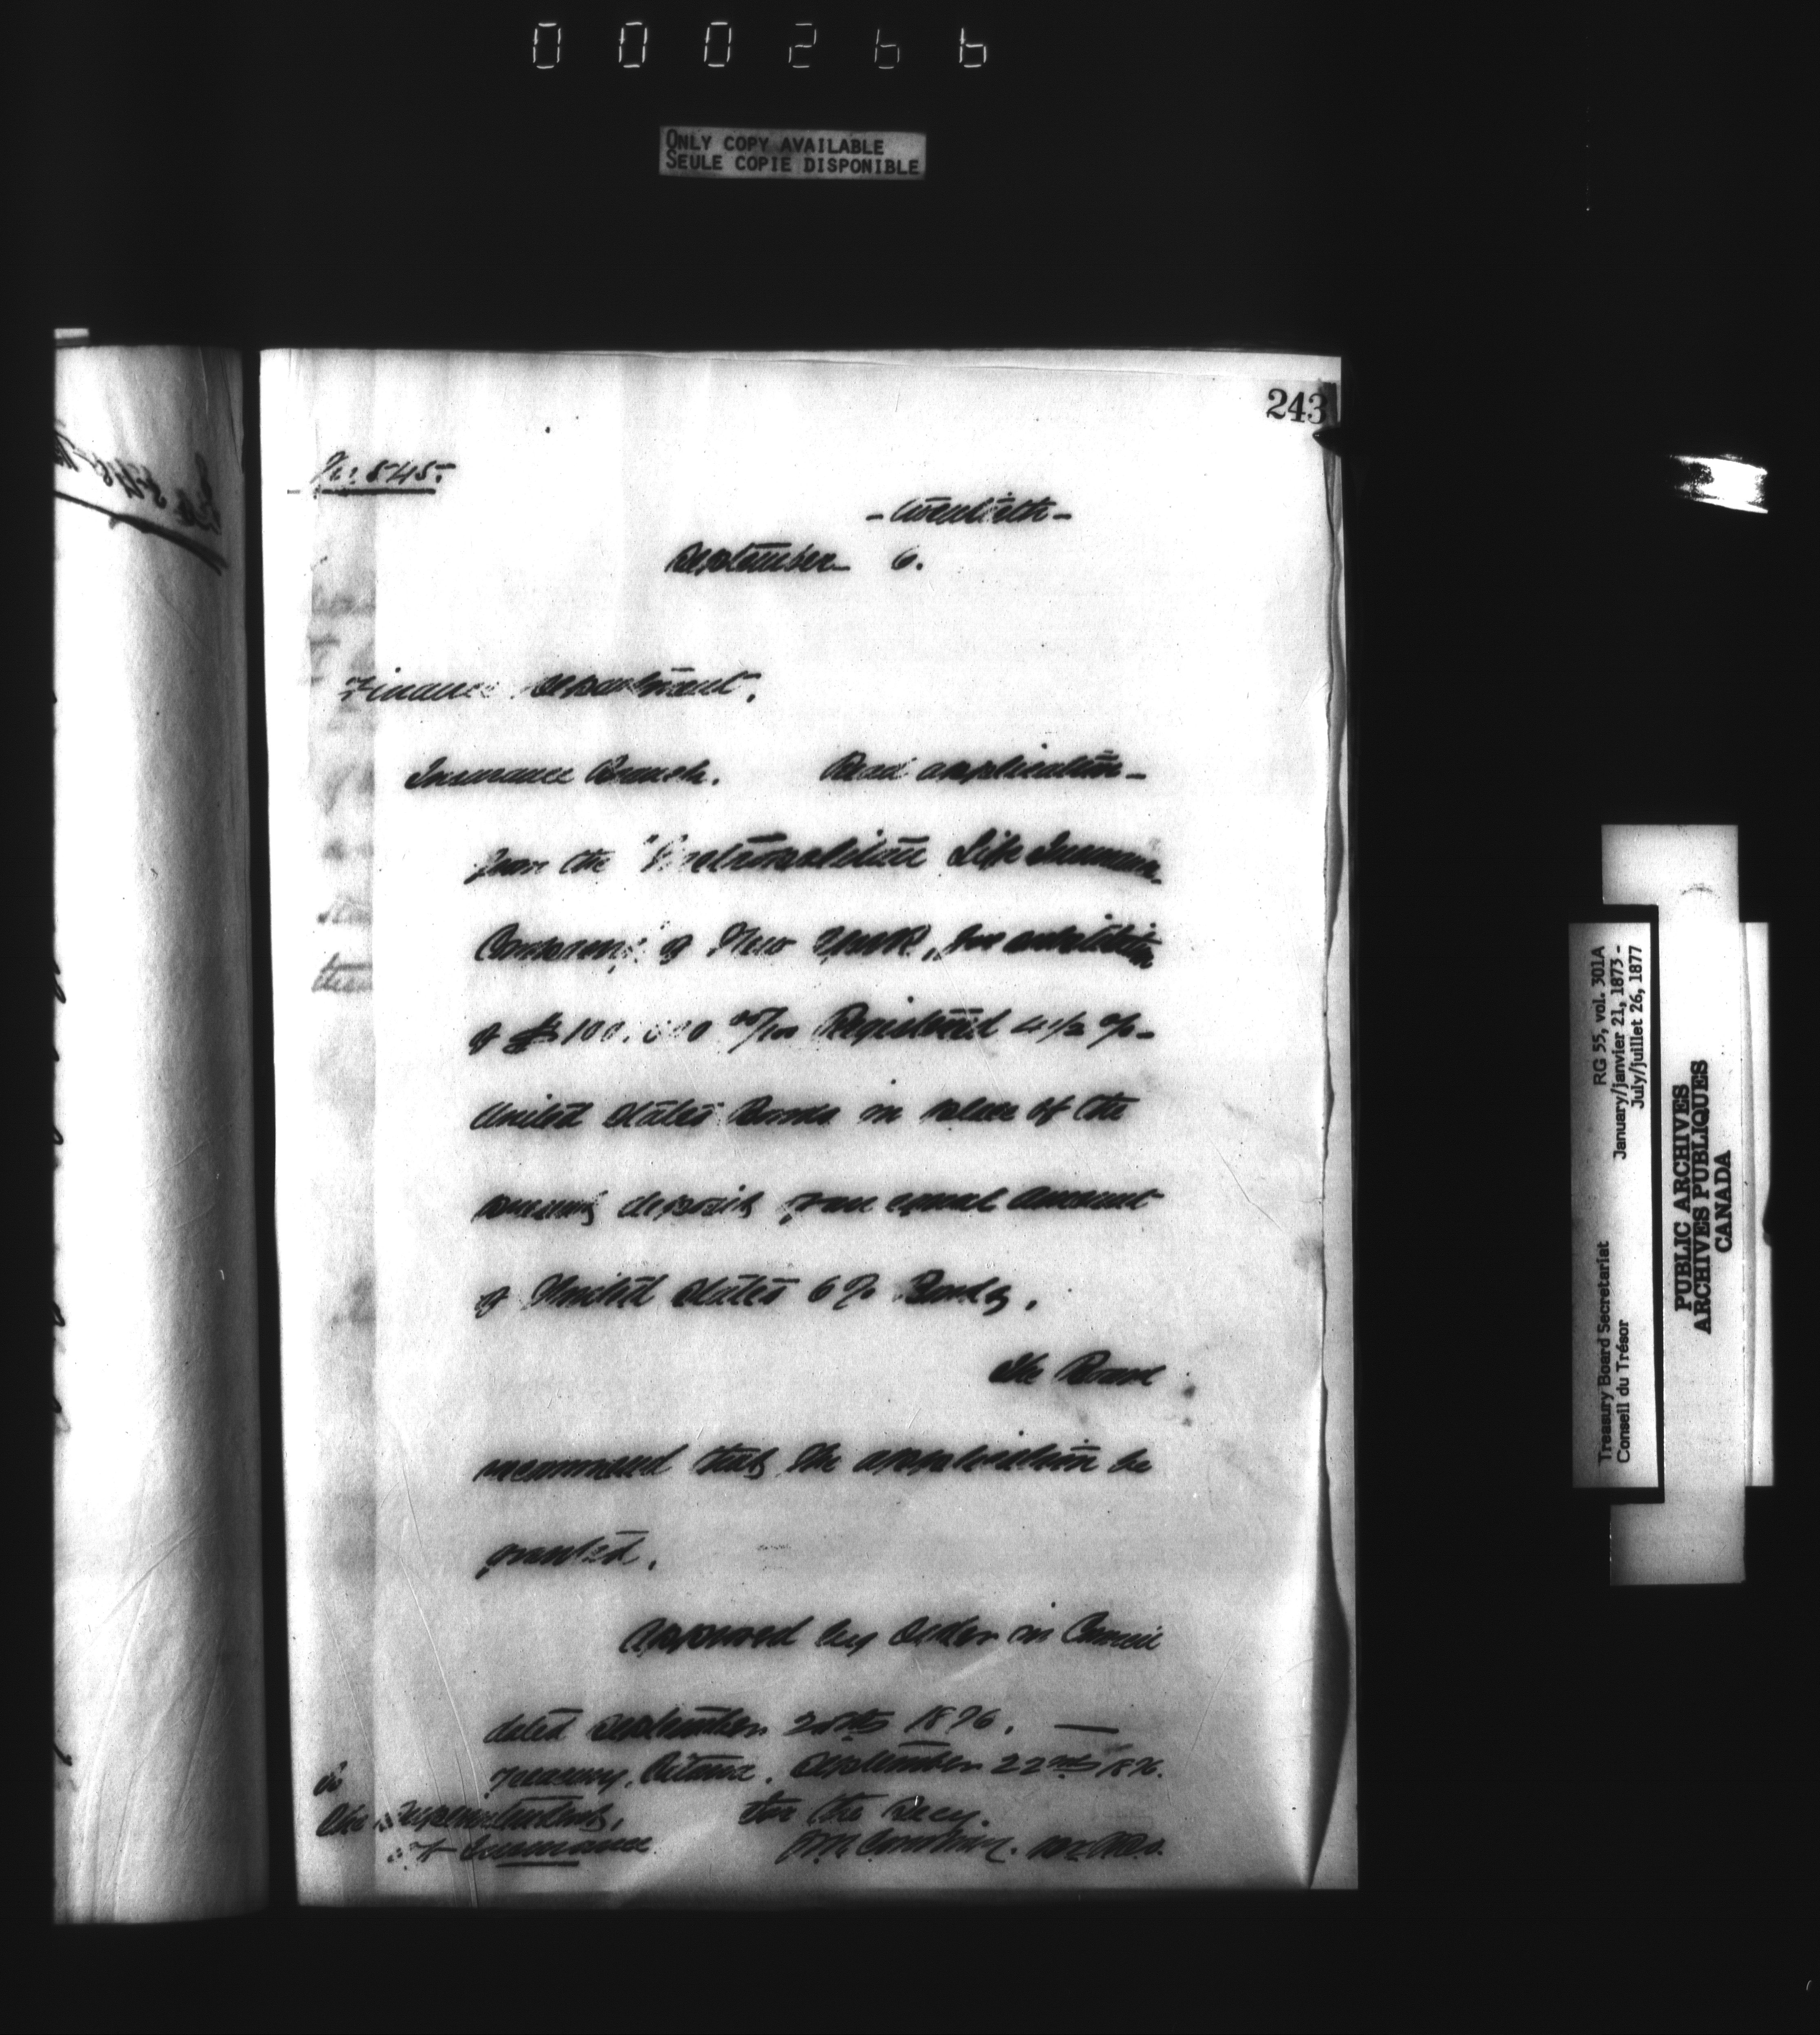 000266
ONLY COPY AVAILABLE
SEULE COPIE DISPONIBLE
243
No: 545.
- twentieth -
September 6.
Finance Department.
Insurance Branch. Read application
from the "Metropolitan Life Insurance
Company" of New York, for substitution
of $100.000 00/100 Registered 4 1/2 %
United States Bonds in place of the
present deposit of an equal amount
of United States 6 % Bonds.
The Board
recommend that the application be
granted.
Approved by Order in Council
dated September 20th 1876. —
Treasury, Ottawa. September 22nd 1876.
To
The Superintendent, for the Secy.
of Insurance
RG 55, vol. 301A
January/janvier 21, 1873 -
July/juillet 26, 1877
Treasury Board Secretariat
Conseil du Trésor
PUBLIC ARCHIVES
ARCHIVES PUBLIQUES
CANADA